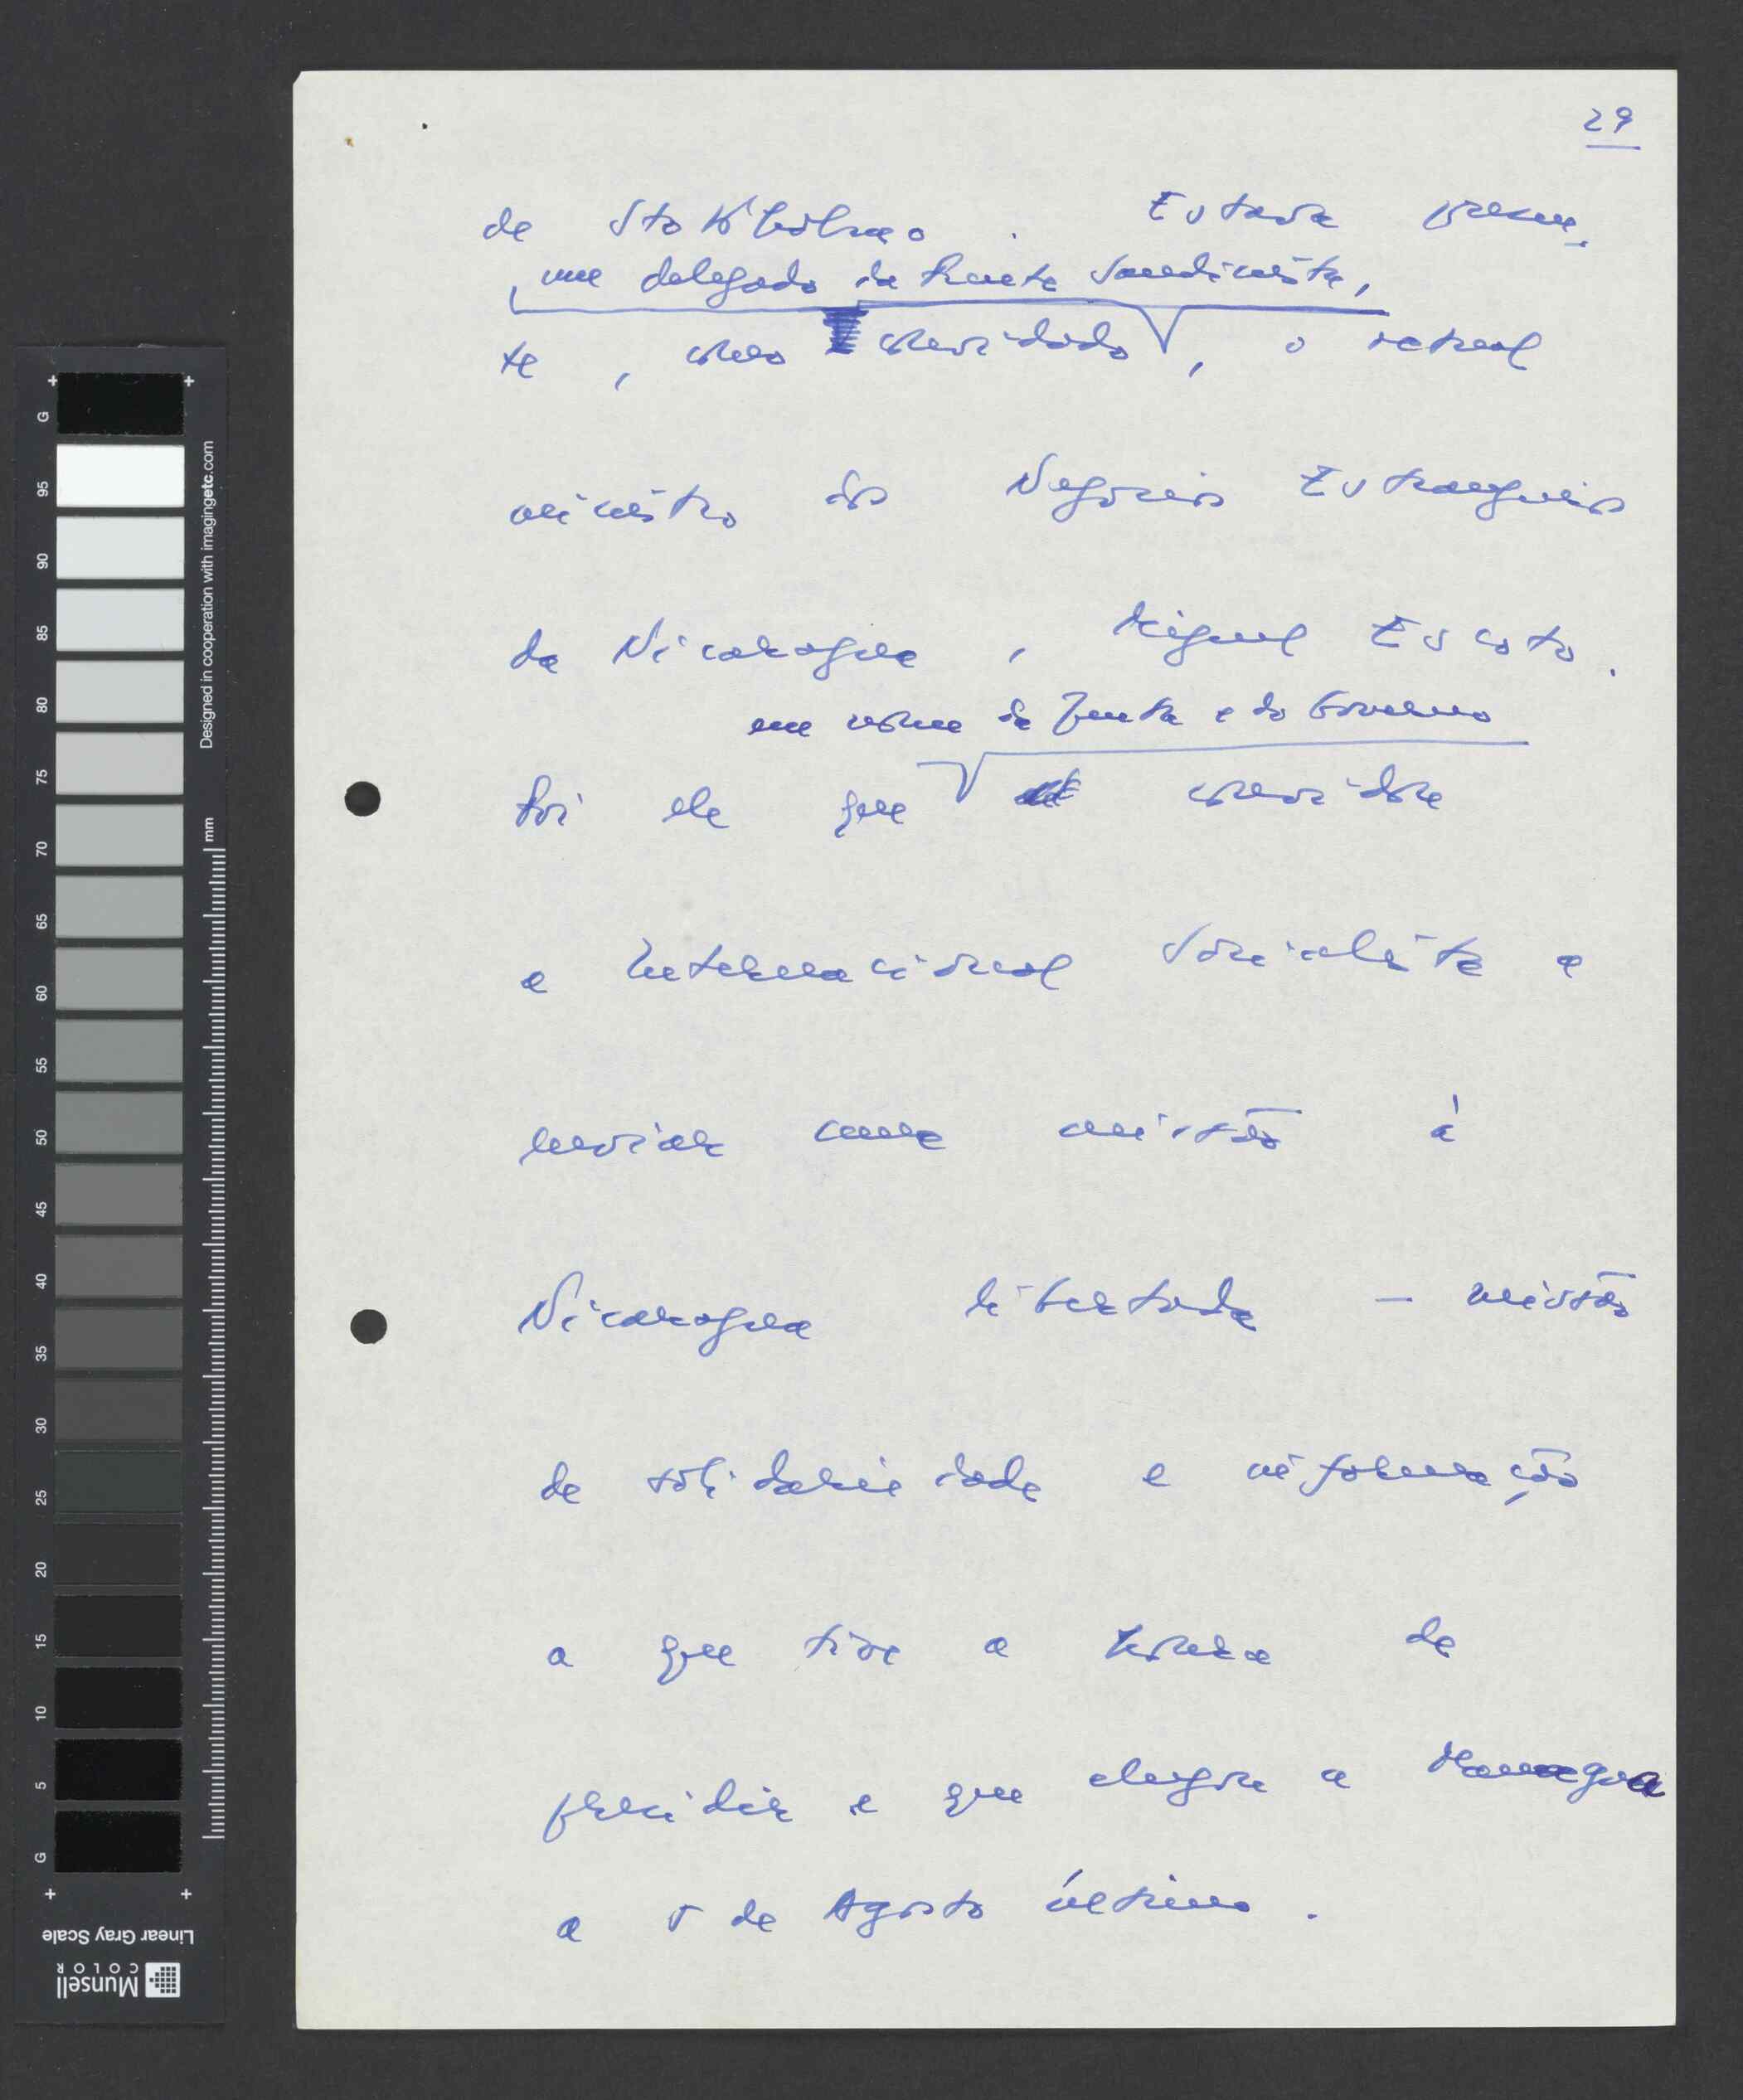 29
de Stokholmo. Estava presen-
, um delegado da Frente Sandinista,
te, como convidado, o actual
ministro dos Negócios Estrangeiros
da Nicaragua, Miguel Escoto.
em nome da Junta e do Governo
Foi ele que convidou
a Internacional Socialista a
enviar uma missão à
Nicaragua libertada — missão
de solidariedade e informação
a que tive a honra de
presidir e que chegou a Managua
a 5 de Agosto último.
G
95
90
85
80
75
70
65
60
55
50
45
40
35
30
25
20
15
10
5
G
Designed in cooperation with imagingetc.com
mm
Linear Gray Scale
Munsell
COLOR